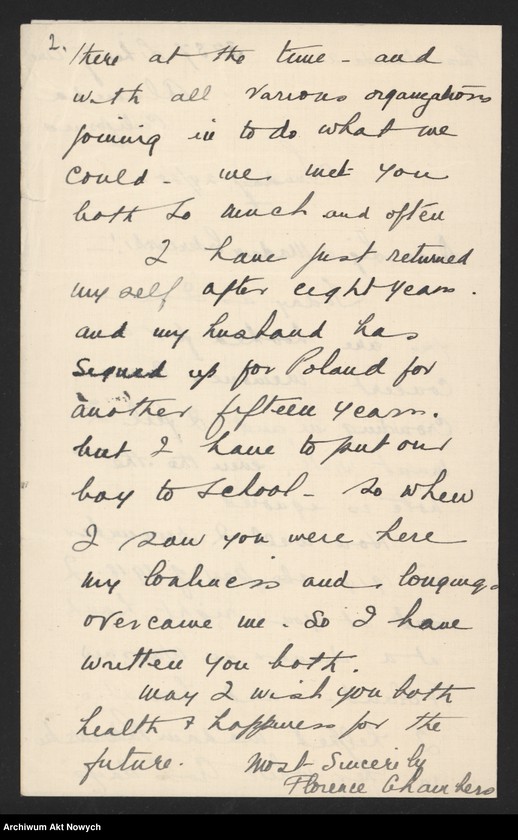 2.
there at the time - and
with all various organizations
joining in to do what we
could - we met you
both so much and often
I have just returned
my self after eight years.
and my husband has
signed up for Poland for
another fifteen years.
but I have to put our
boy to school - so when
I saw you were here
my loneliness and longings
overcame me. So I have
written you both.
May I wish you both
health & happiness for the
future. Most Sincerely
Florence Chambers
Archiwum Akt Nowych